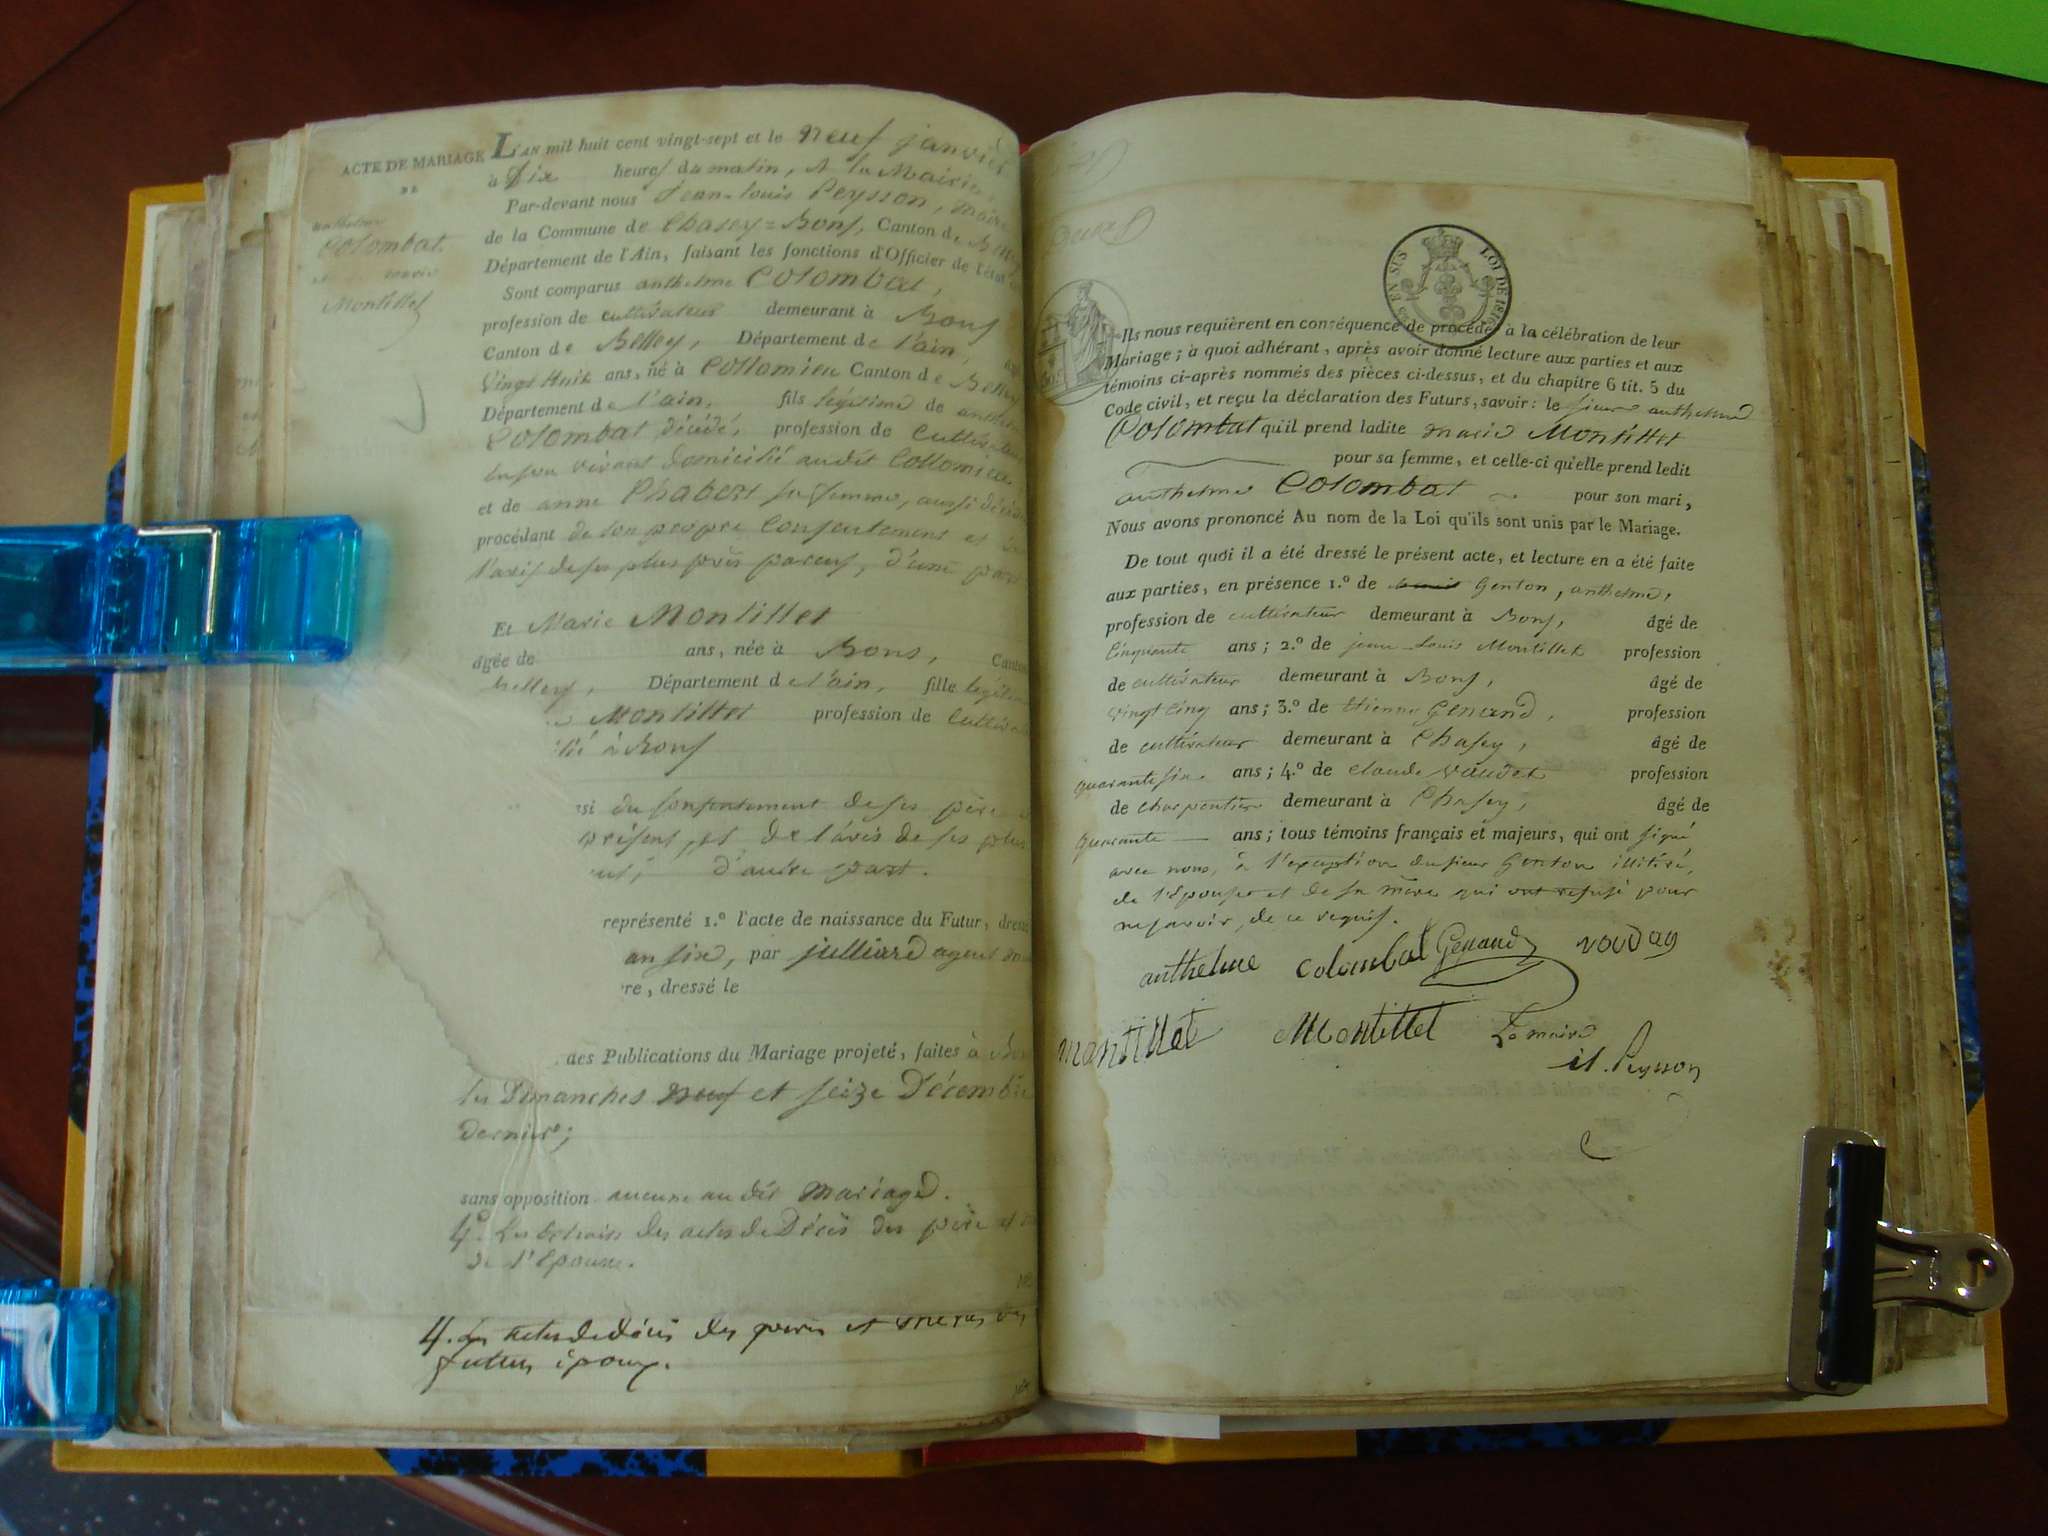 ACTE DE MARIAGE
DE
anthelme
Colombat
Montillet
L'AN mil huit cent vingt-sept et le neuf janvier
à dix heures du matin, A la Mairie
Par-devant nous Jean-Louis Peysson, maire
de la Commune de Chasey=Bons, Canton de
Département de l'Ain, faisant les fonctions d'Officier de l'état
Sont comparus anthelme Colombat,
profession de cultivateur demeurant à Bons
Canton de Belley, Département de l'ain,
Vingt Huit ans, né à Collomieu Canton de Belley
Département de l'ain, fils légitime de
Colombat décédé, profession de
en son vivant domicilié audit Collomieu
et de anne Chabert sa femme, aussi
procédant de son propre Consentement et
l'avis de ses plus près parens, d'une part
Et Marie Montillet
âgée de ans, née à Bons, Canton
belley, Département de l'ain, fille
Montillet profession de
à Bons
du consentement de ses père
présent, et de l'avis de ses plus
d'autre part.
représenté 1.º l'acte de naissance du Futur,
an six, par julliard agent
dressé le
des Publications du Mariage projeté, faites à
les Dimanches neuf et seize Décembre
dernier;
sans opposition aucune au dit mariage.
4º. Les Extraits des actes de Décès des père et
de l'Epouse.
4. les actes de décès des pères et mères des
futurs époux.
LOI DE 1816
Ils nous requièrent en conséquence de procéder à la célébration de leur
Mariage ; à quoi adhérant, après avoir donné lecture aux parties et aux
témoins ci-après nommés des pièces ci-dessus, et du chapitre 6 tit. 5 du
Code civil, et reçu la déclaration des Futurs, savoir : le sieur anthelme
Colombat qu'il prend ladite marie Montillet
pour sa femme, et celle-ci qu'elle prend ledit
anthelme Colombat pour son mari,
Nous avons prononcé Au nom de la Loi qu'ils sont unis par le Mariage.
De tout quoi il a été dressé le présent acte, et lecture en a été faite
aux parties, en présence 1.º de Genton, anthelme,
profession de cultivateur demeurant à Bons, âgé de
Cinquante ans ; 2.º de jean-Louis Montillet profession
de cultivateur demeurant à Bons, âgé de
vingt Cinq ans ; 3.º de Etienne Genand, profession
de cultivateur demeurant à Chasey, âgé de
quarante six ans ; 4.º de Claude Vaudet profession
de Charpentier demeurant à Chasey, âgé de
quarante ans ; tous témoins français et majeurs, qui ont signé
avec nous, à l'exception du sieur Genton illitéré,
de l'épouse et de sa mère qui ont refusé pour
ne savoir, de ce requis.
anthelme colombat Genand
montillet Montillet Le maire
Peysson